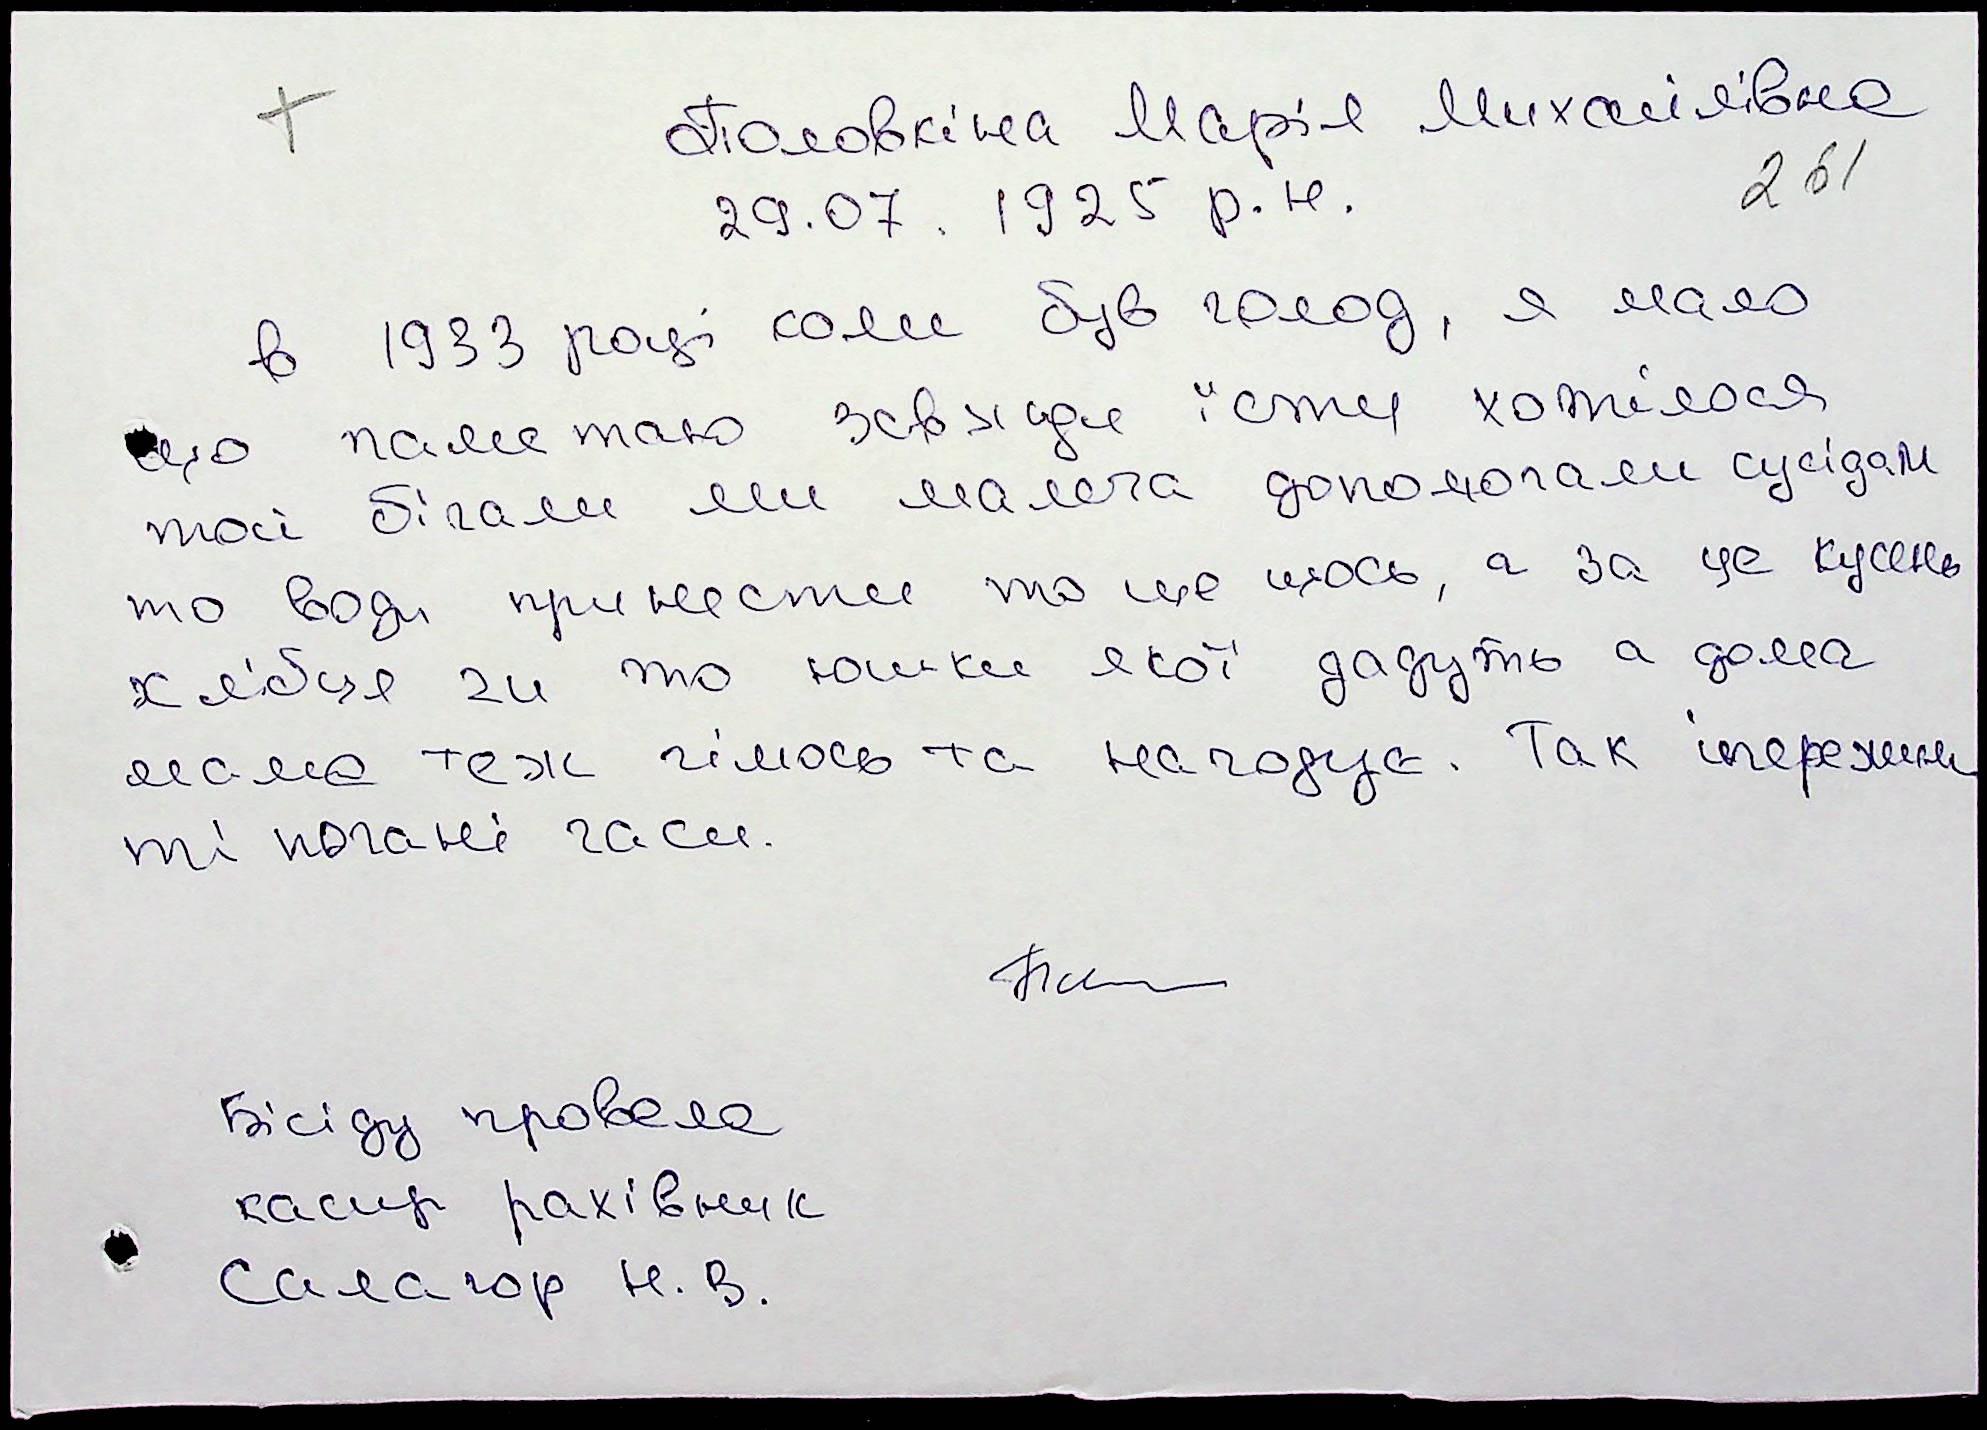 +
Половкіна Марія Михайлівна
261
29.07. 1925 р.н.
в 1933 році коли був голод, я мало
що паметаю завжди їсти хотілося
тої бігали ми малеча допомогали сусідам
то води принести то ще щось, а за це кусень
хлібця чи то юшки якої дадуть а дома
мама теж чімось та нагодує. Так іпережили
ті погані часи.
Бісіду провела
касир рахівник
Салагор Н.В.